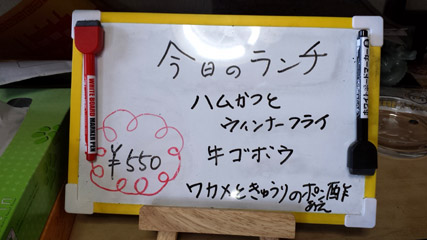 今日のランチ
ハムかつと
ウィンナーフライ
牛ゴボウ
ワカメときゅうりのポン酢
あえ
¥550
WHITE BOARD MARKER PEN